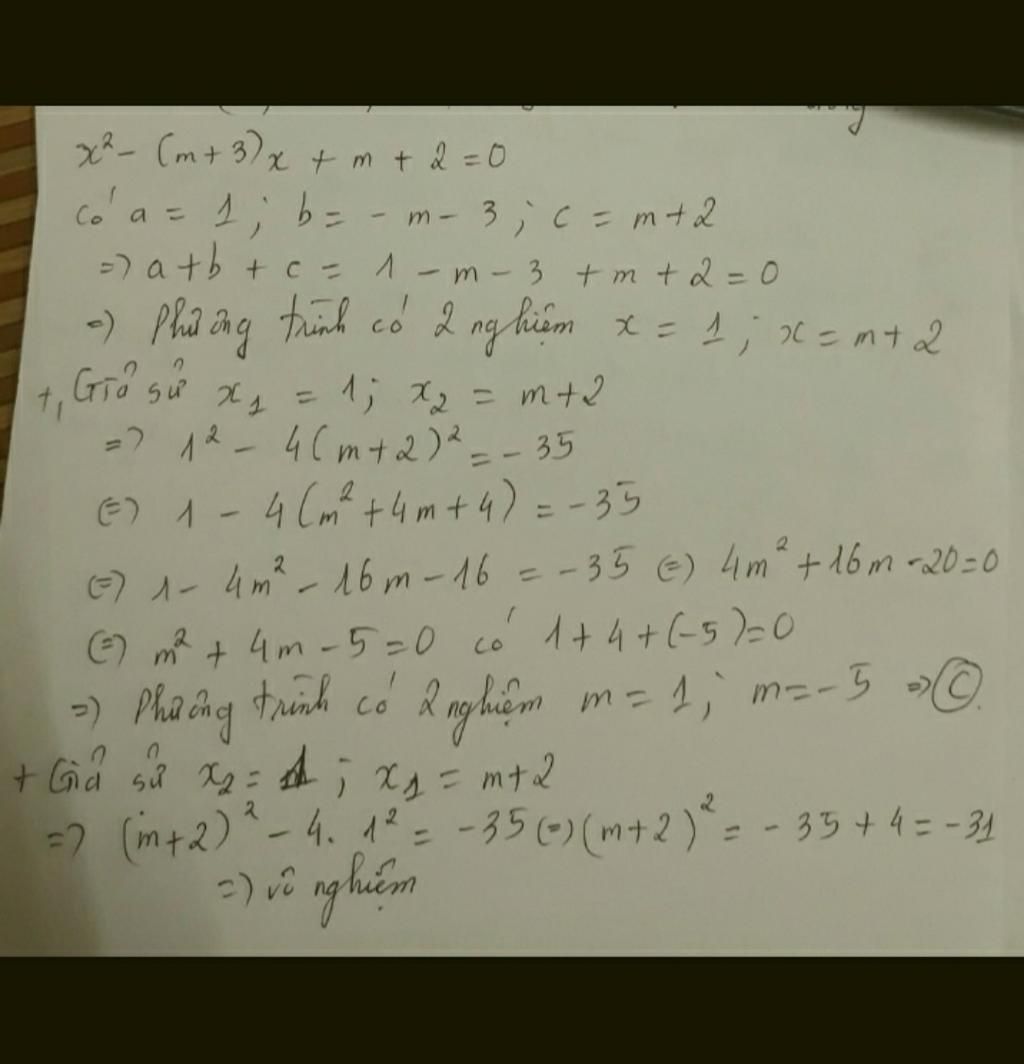 x² - (m+3)x + m + 2 = 0
có a = 1; b = - m - 3; c = m+2
=> a+b + c = 1 - m - 3 + m + 2 = 0
=> Phương trình có 2 nghiệm x = 1; x = m+2
+, Giả sử x₁ = 1; x₂ = m+2
=> 1² - 4(m+2)² = - 35
(=) 1 - 4(m² + 4m + 4) = - 35
(=) 1 - 4m² - 16m - 16 = - 35 (=) 4m² + 16m - 20 = 0
(=) m² + 4m - 5 = 0 có 1 + 4 + (-5) = 0
=> Phương trình có 2 nghiệm m = 1; m = - 5 => C
+ Giả sử x₂ = 1; x₁ = m+2
=> (m+2)² - 4. 1² = - 35 (=) (m+2)² = - 35 + 4 = - 31
=> vô nghiệm